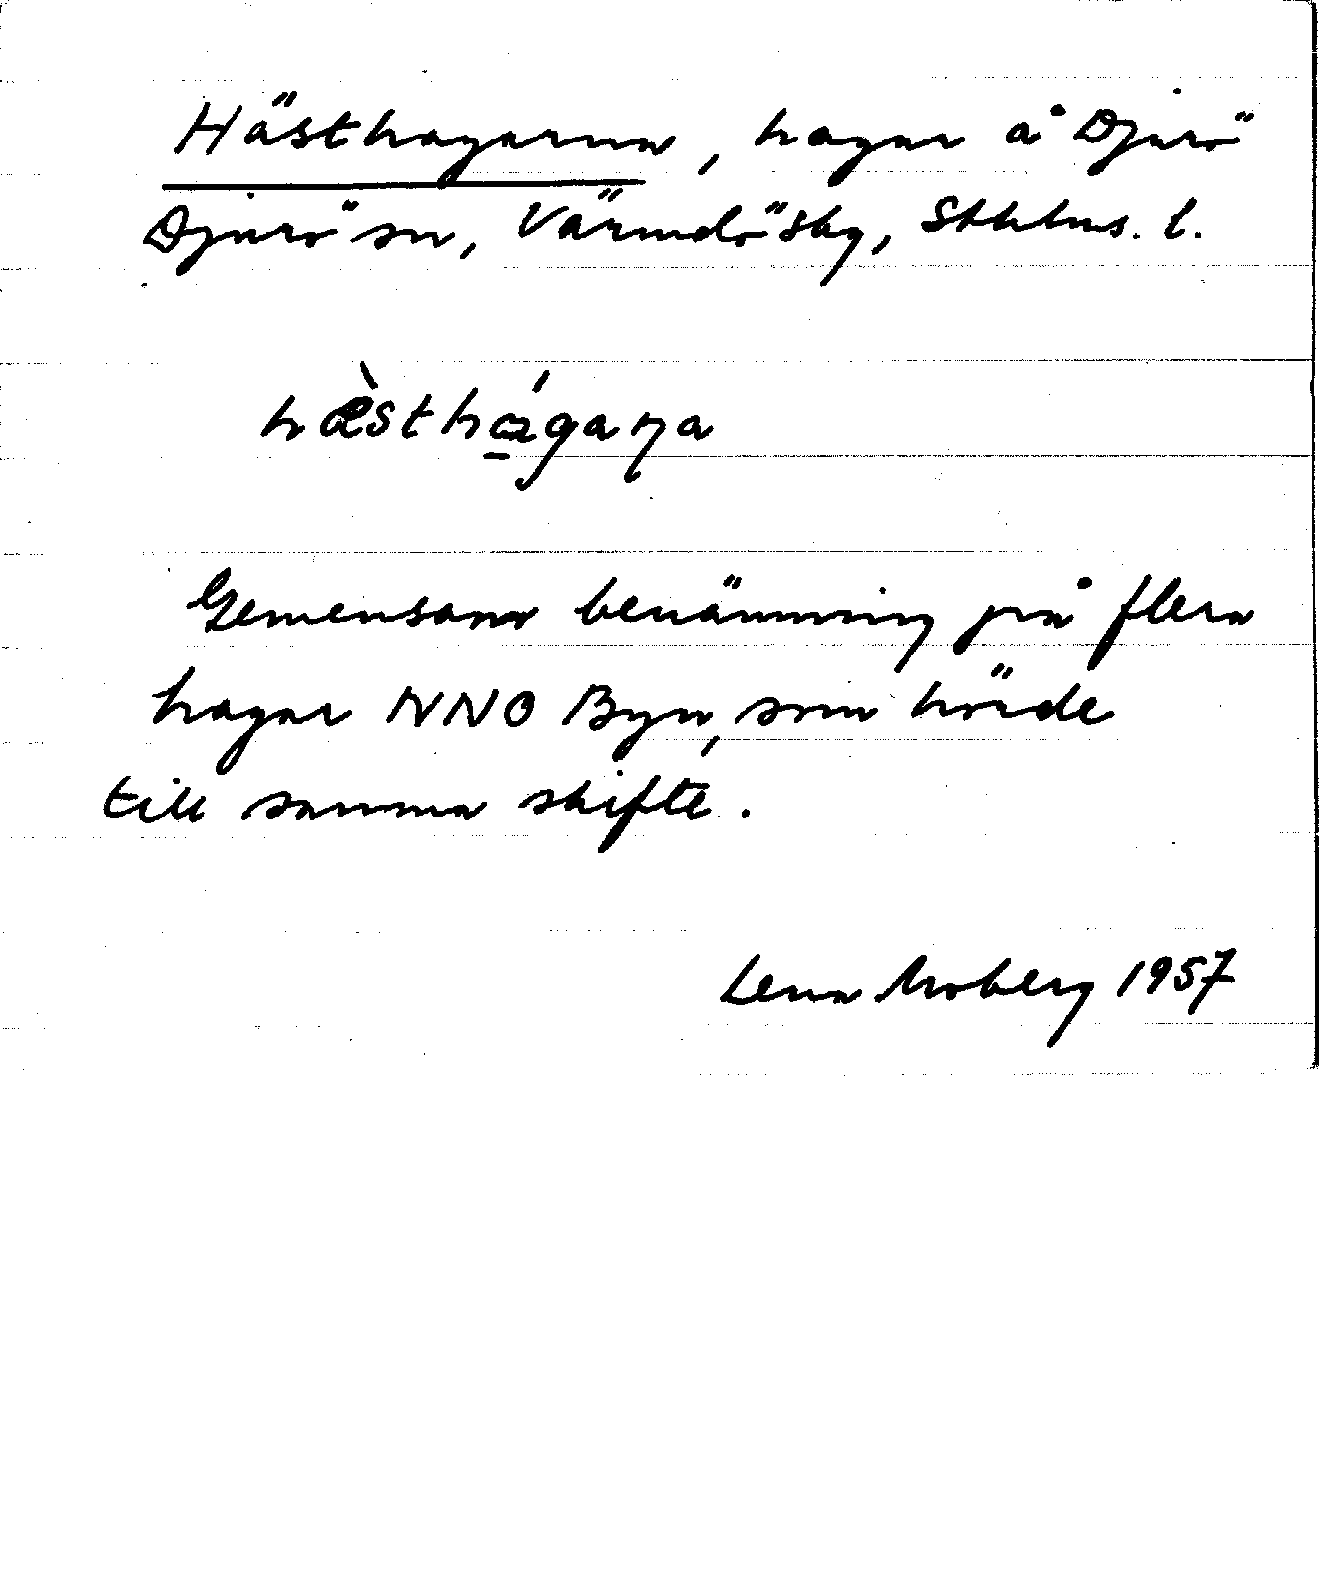 Hästhagarna, hagar å Djurö
Djurö sn, Värmdö skg, Sthlms. l.
hæ̀sthɑ̠́gaɳa
Gemensam benämning på flera
hagar NNO Byn, som hörde
till samma skifte.
Lena Moberg 1957